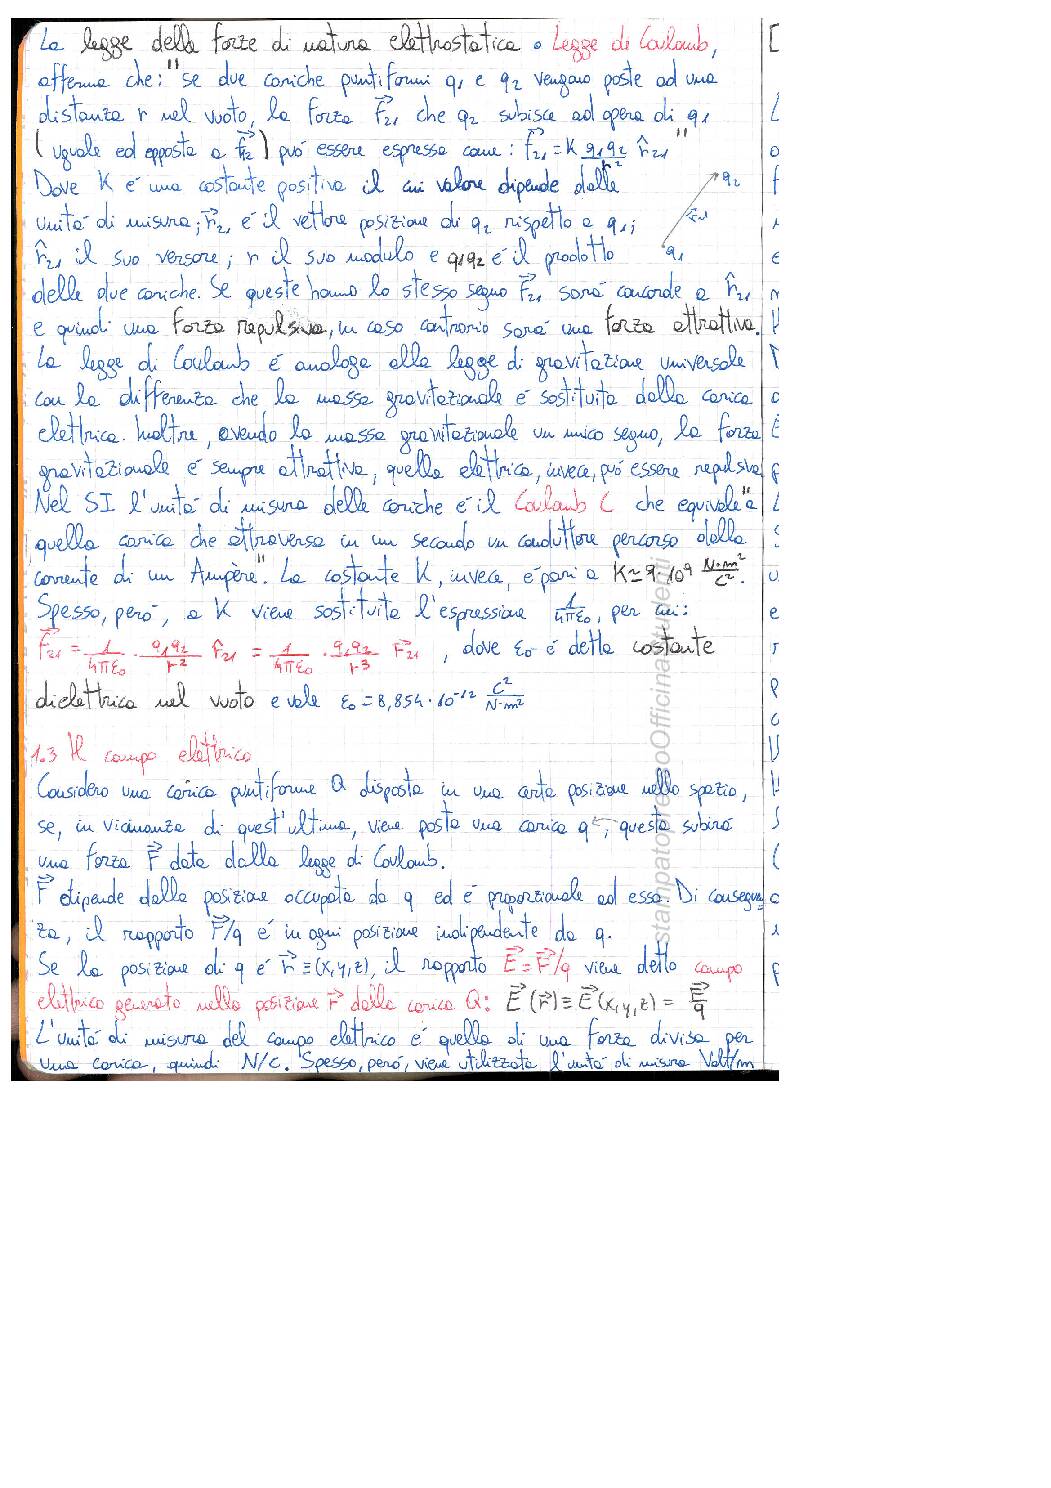 La legge della forza di natura elettrostatica o Legge di Coulomb,
afferma che: "se due cariche puntiformi q₁ e q₂ vengano poste ad una
distanza r nel vuoto, la forza F⃗₂₁ che q₂ subisce ad opera di q₁
(uguale ed opposta a F⃗₁₂) può essere espressa come: F⃗₂₁ = K q₁q₂/r² r̂₂₁"
Dove K é una costante positiva il cui valore dipende dalle
unità di misura; r⃗₂₁ é il vettore posizione di q₂ rispetto a q₁;
q₂
r⃗₂₁
q₁
r̂₂₁ il suo versore; r il suo modulo e q₁q₂ é il prodotto
delle due cariche. Se queste hanno lo stesso segno F⃗₂₁ sará concorde a r̂₂₁
e quindi una forza repulsiva, in caso contrario sará una forza attrattiva.
La legge di Coulomb é analoga alla legge di gravitazione universale
con la differenza che la massa gravitazionale é sostituita dalla carica
elettrica. Inoltre, avendo la massa gravitazionale un unico segno, la forza
gravitazionale é sempre attrattiva, quella elettrica, invece, puó essere repulsiva
Nel SI l'unitá di misura delle cariche é il Coulomb C che equivale "a
quella carica che attraversa in un secondo un conduttore percorso dalla
corrente di un Ampère". La costante K, invece, é pari a K≃9·10⁹ N·m²/C².
Spesso, peró, a K viene sostituita l'espressione 1/4πε₀, per cui:
F⃗₂₁ = 1/4πε₀ · q₁q₂/r² r̂₂₁ = 1/4πε₀ · q₁q₂/r³ r⃗₂₁, dove ε₀ é detta costante
dielettrica nel vuoto e vale ε₀ = 8,854·10⁻¹² C²/N·m²
1.3 Il campo elettrico
Considero una carica puntiforme Q disposta in una certa posizione nello spazio,
se, in vicinanza di quest'ultima, viene posta una carica q, questa subirá
una forza F⃗ data dalla legge di Coulomb.
F⃗ dipende dalla posizione occupata da q ed é proporzionale ad essa. Di conseguen
za, il rapporto F⃗/q é in ogni posizione indipendente da q.
Se la posizione di q é r⃗ ≡ (x,y,z), il rapporto E⃗ = F⃗/q viene detto campo
elettrico generato nella posizione r⃗ dalla carica Q: E⃗(r⃗) ≡ E⃗(x,y,z) = F⃗/q
L'unitá di misura del campo elettrico é quella di una forza divisa per
una carica, quindi N/C. Spesso, peró, viene utilizzata l'unitá di misura Volt/m